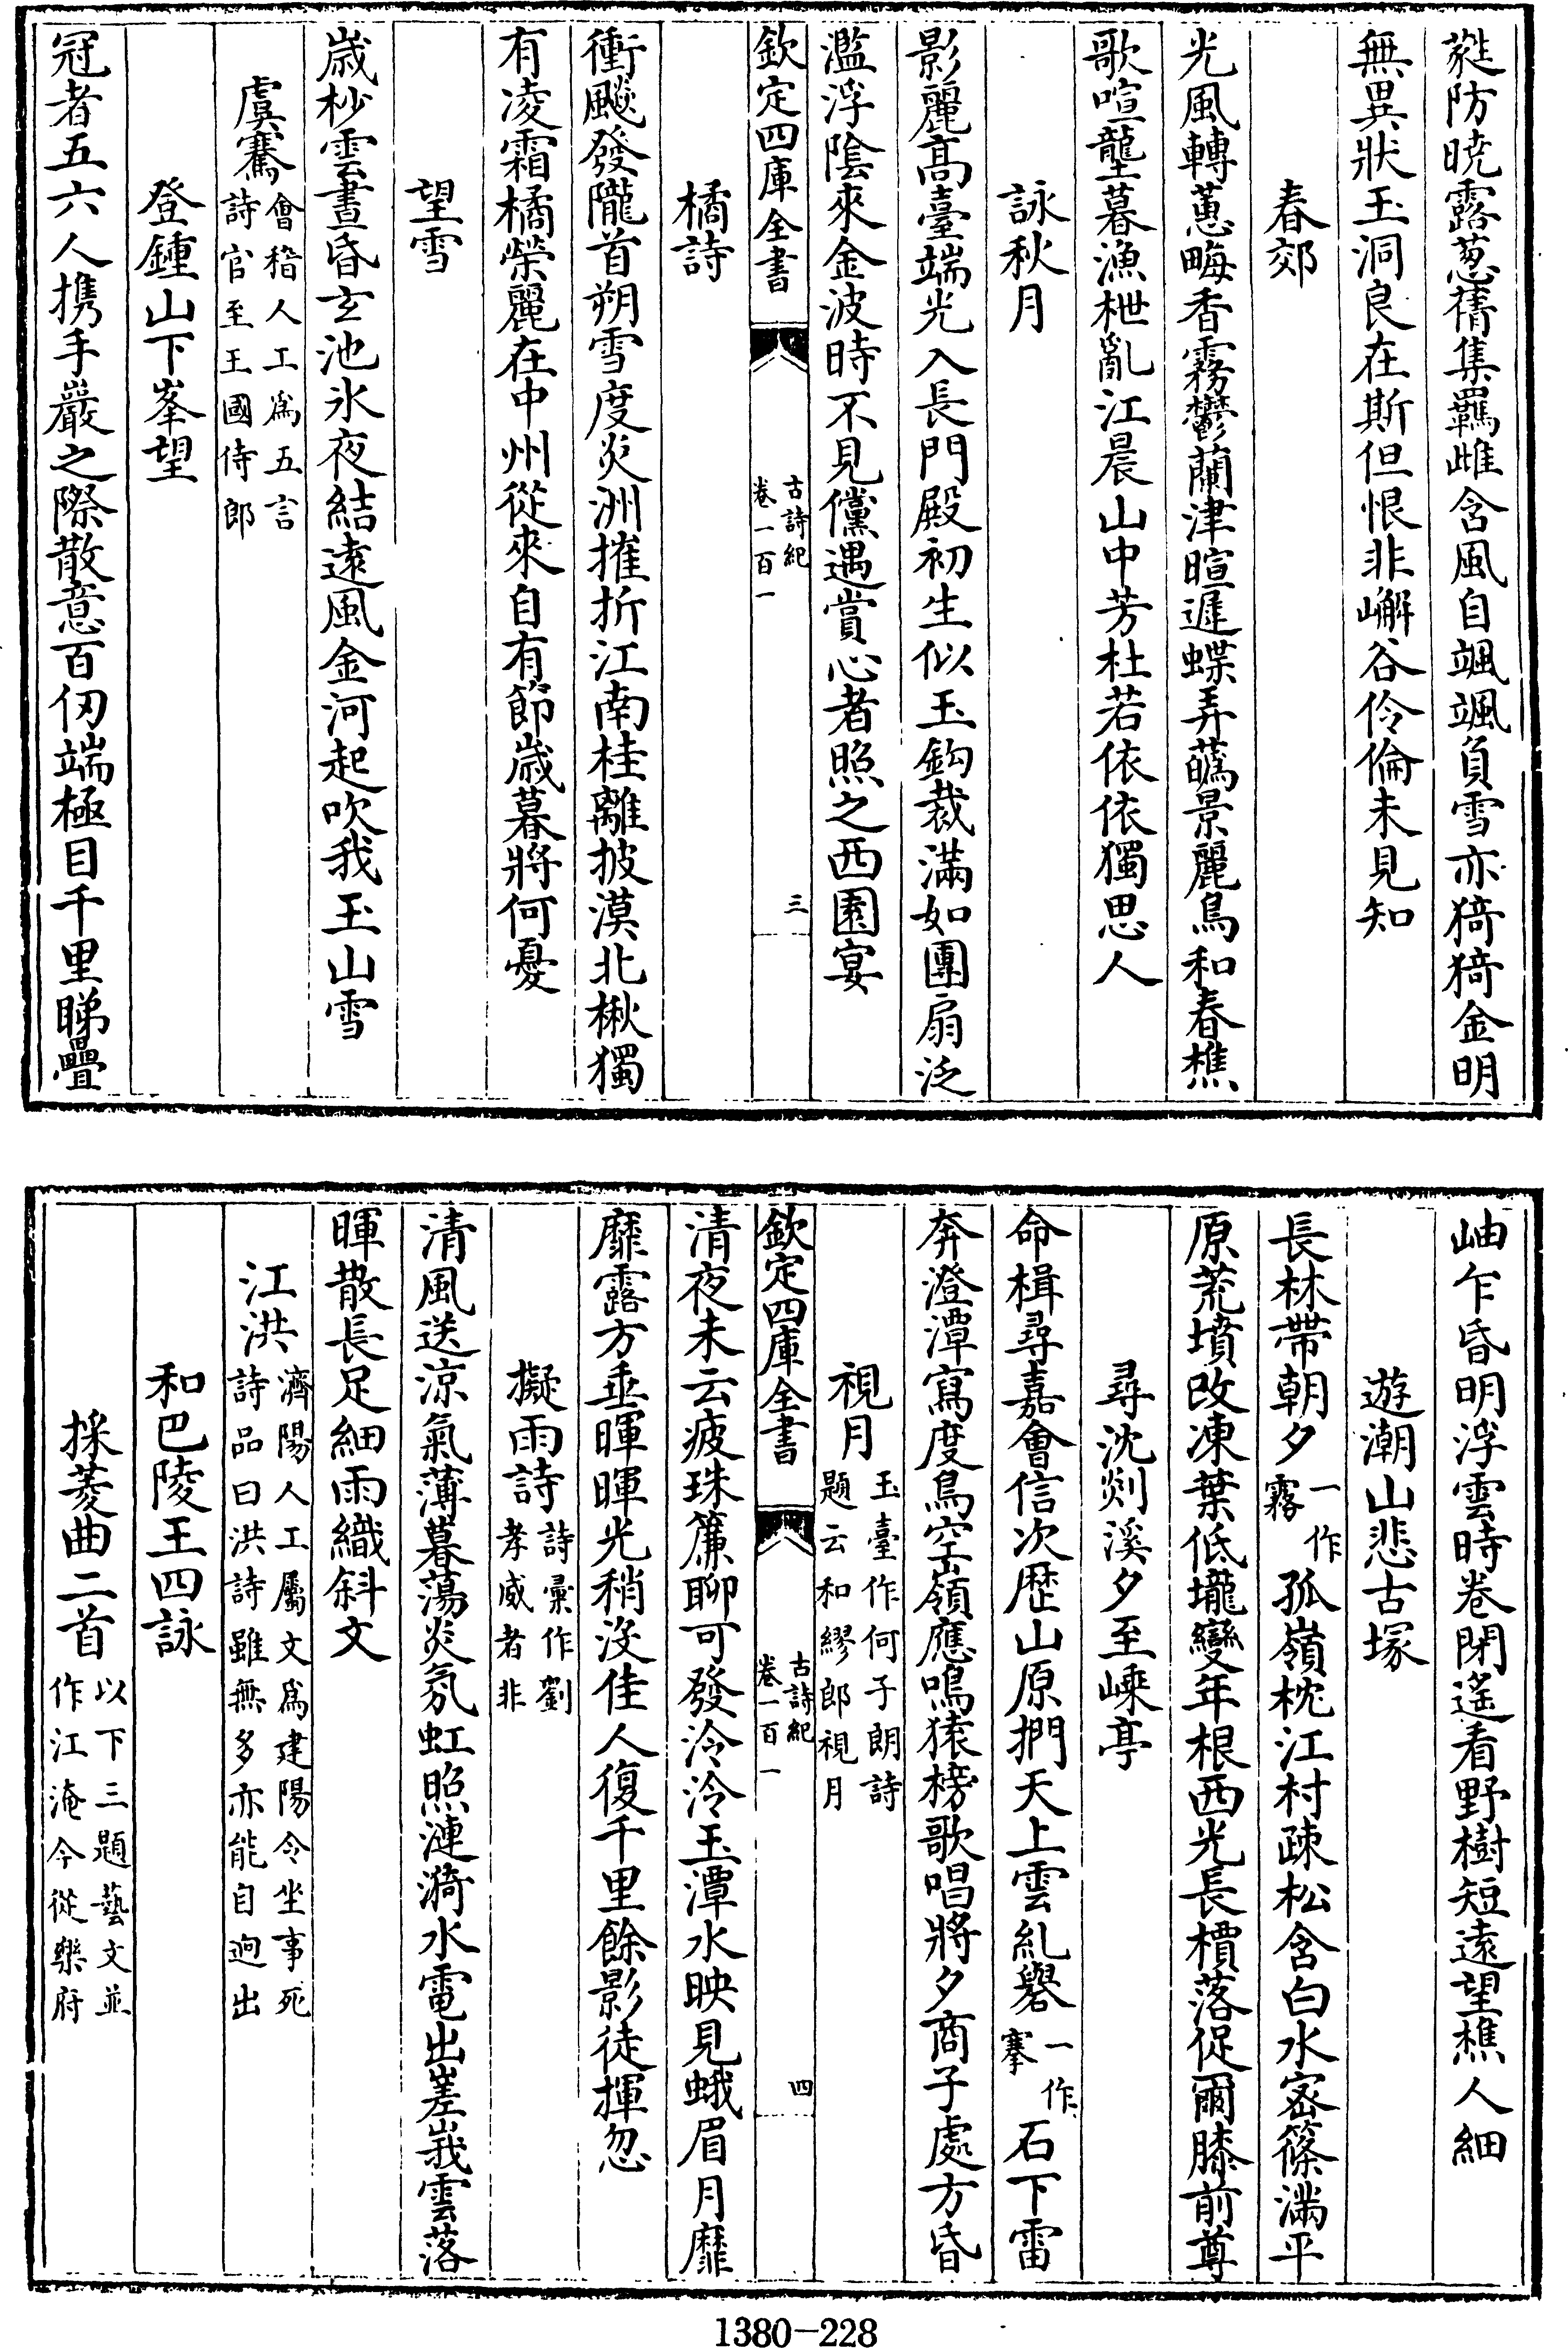 蕤防曉露葱蒨集羈雌含風自颯颯負雪亦猗猗金明
無異狀玉洞良在斯但恨非嶰谷伶倫未見知
春郊
光風轉蕙畹香霧鬱蘭津暄遲蝶弄蘤景麗鳥和春樵
歌喧壟暮漁枻亂江晨山中芳杜若依依獨思人
詠秋月
影麗高臺端光入長門殿初生似玉鈎裁滿如團扇泛
濫浮陰來金波時不見儻遇賞心者照之西園宴
欽定四庫全書
古詩紀
卷一百一
三
橘詩
衝飈發隴首朔雪度炎洲摧折江南桂離披漠北楸獨
有凌霜橘榮麗在中州從來自有節歲暮將何憂
望雪
歲杪雲晝昏玄池氷夜結遠風金河起吹我玉山雪
虞騫
會稽人工爲五言
詩官至王國侍郎
登鍾山下峯望
冠者五六人携手巖之際散意百仞端極目千里睇疊
岫乍昏明浮雲時卷閉遙看野樹短遠望樵人細
遊潮山悲古塚
長林帶朝夕一作霧孤嶺枕江村疎松含白水密篠滿平
原荒墳改凍葉低壠變年根西光長檟落促爾膝前尊
尋沈剡溪夕至嵊亭
命楫尋嘉會信次歴山原捫天上雲糺礜一作搴石下雷
奔澄潭寫度鳥空嶺應鳴猿榜歌唱將夕商子處方昏
視月
玉臺作何子朗詩
題云和繆郎視月
欽定四庫全書
古詩紀
卷一百一
四
清夜未云疲珠簾聊可發泠泠玉潭水映見蛾眉月靡
靡露方垂暉暉光稍沒佳人復千里餘影徒揮忽
擬雨詩
詩彙作劉
孝威者非
清風送涼氣薄暮蕩炎氛虹照漣漪水電出嵳峩雲落
暉散長足細雨織斜文
江洪
濟陽人工屬文爲建陽令坐事死
詩品曰洪詩雖無多亦能自逈出
和巴陵王四詠
採菱曲二首
以下三題藝文並
作江淹今從樂府
1380-228